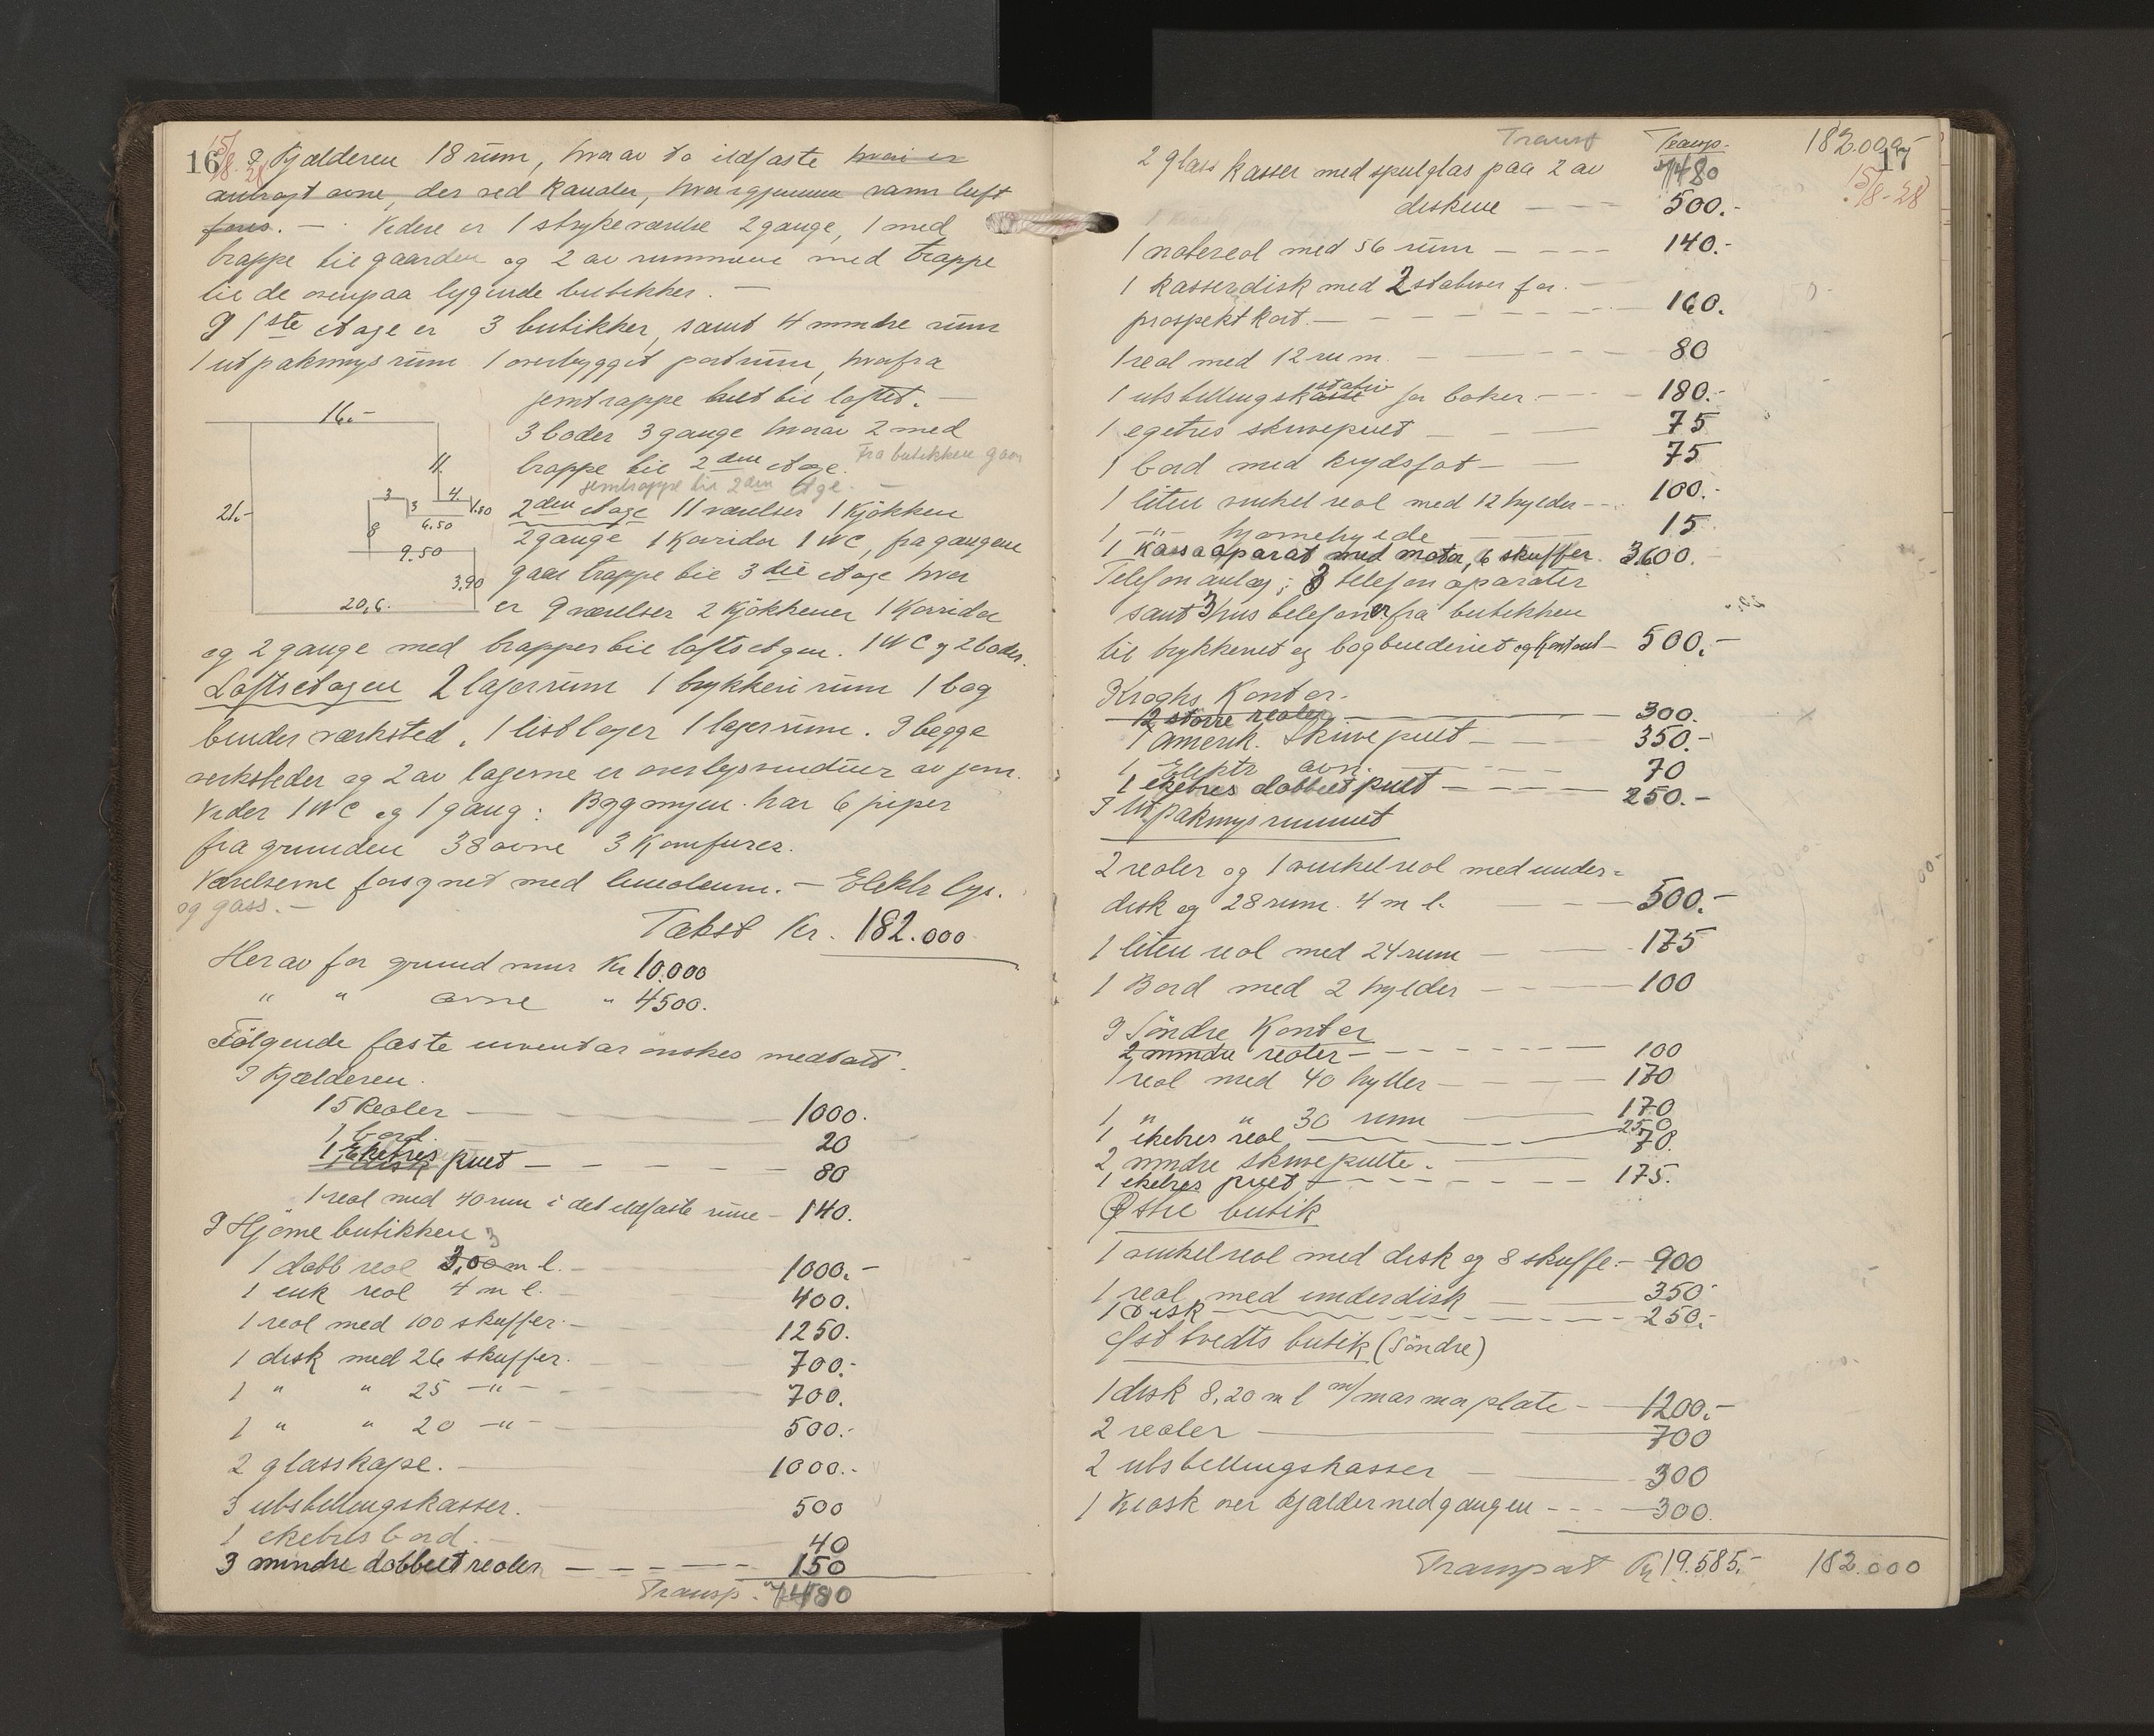 16
15/8. 28
I Kjælderen 18 rüm, hvorav to ildfaste hvori er
anbragt ovne, der ved kanaler, hvorigjennem varm luft
føres. — Videre er 1 strykeværelse 2 gange, 1 med
trappe til gaarden og 2 av rummene med trappe
til de ovenpaa lygende butikker. —
I 1ste etage er 3 butikker, samt 4 mindre rüm
1 utpakningsrüm 1 overbygget portrüm, hvorfra
jerntrappe helt til loftet. —
3 boder 3 gange hvorav 2 med
trappe til 2den etage. Fra butikken gaar
jerntrappe til 2den Etge. —
2den etage 11 værelser 1 Kjökken
2 gange 1 Korridor 1 WC, fra gangen
gaar trappe til 3die etage hvor
er 9 værelser 2 Kjökkener 1 Korridor
16.-
11.
21.-
3
3
4.
1.80
6.50
8
9.50
3.90
20,6.
og 2 gange med trapper til loftsetgen. 1 WC og 2 boder.
Loftsetagen 2 lagerrüm 1 trykkeri rüm 1 bog
binder værksted, 1 listlager 1 lagerrüm. I begge
verksteder og 2 av lagerne er overlysvinduer av jern.
Vider 1 WC og 1 gang: Bygningen har 6 piper
fra grunden 38 ovne 3 Komfurer.
Værelserne forsynet med linoleum. — Elektr lys.
og gass. —
Takst Kr. 182.000
Herav for grund mur Kr 10.000
" " ovne " 4500.
Følgende faste inventar önskes medtatt.
I Kjælderen.
15 Reoler — 1000.
1 bord. 20
1 Eketres pult — 80
1 reol med 40 rum i det ildfaste rüm — 140.
I Hjörne butikken
1 dobb reol 3,00 m l. — 1000.-
1 enk reol 4 m l. — 400.
1 reol med 100 skuffer. — 1250.
1 disk med 26 skuffer. 700.-
1 " " 25 —"— 700.
1 " " 20 —"— 500.-
2 glasskape. — 1000.-
3 utstillingskasser. 500
1 eketres bord. — 40
3 mindre dobbelt reoler — 150
Transp. 7480
17
15/8-28
Transt Transp. 182.000,-
2 glass kasser med speilglas paa 2 av 7480
diskene — 500.-
1 notereol med 56 rüm — 140.-
1 kasserdisk med 2 stativer for
prospektkort. — 160.
1 reol med 12 rum. 80
1 utstillingskasse stativ for bøker. — 180.-
1 egetres skrivepult — 75
1 bord med krydsfot — 75
1 liten vinkel reol med 12 hylder — 100.-
1 -"- hjørnehylde 15
1 Kassaaparat med motor, 6 skuffer. 3.600.
Telefon anlæg; 3 telefon aparater
samt 3 hus telefoner fra butikken
til trykkeriet og bogbinderiet og Kontoret — 500.-
I Kroghs Kontor.
2 större reoler — 300.
1 Amerik. Skrivepult — 350.-
1 Elektr ovn. — 70
1 eketres dobbelt pult — 250.-
I Utpakningsrummet
2 reoler og 1 vinkelreol med under-
disk og 28 rum. 4 m l. — 500.-
1 liten reol med 24 rum — 175
1 Bord med 2 hylder — 100
I Söndre Kontor
2 mindre reoler — 100
1 reol med 40 hyller — 170
1 " " 30 rum — 170
1 eketres reol — 250
2 mindre skrivepulte. — 70.
1 eketres pult — 175.
Østre butik
1 vinkelreol med disk og 8 skuffe. — 900
1 reol med underdisk — 350
1 Disk — 250.-
Østtvedts butik (Söndre)
1 disk 8,20 m l m/ marmorplate — 1200.-
2 reoler — 700
2 utstillingskasser — 300
1 Kiosk over kjældernedgangen — 300.
Transport Kr 19.585.- 182.000